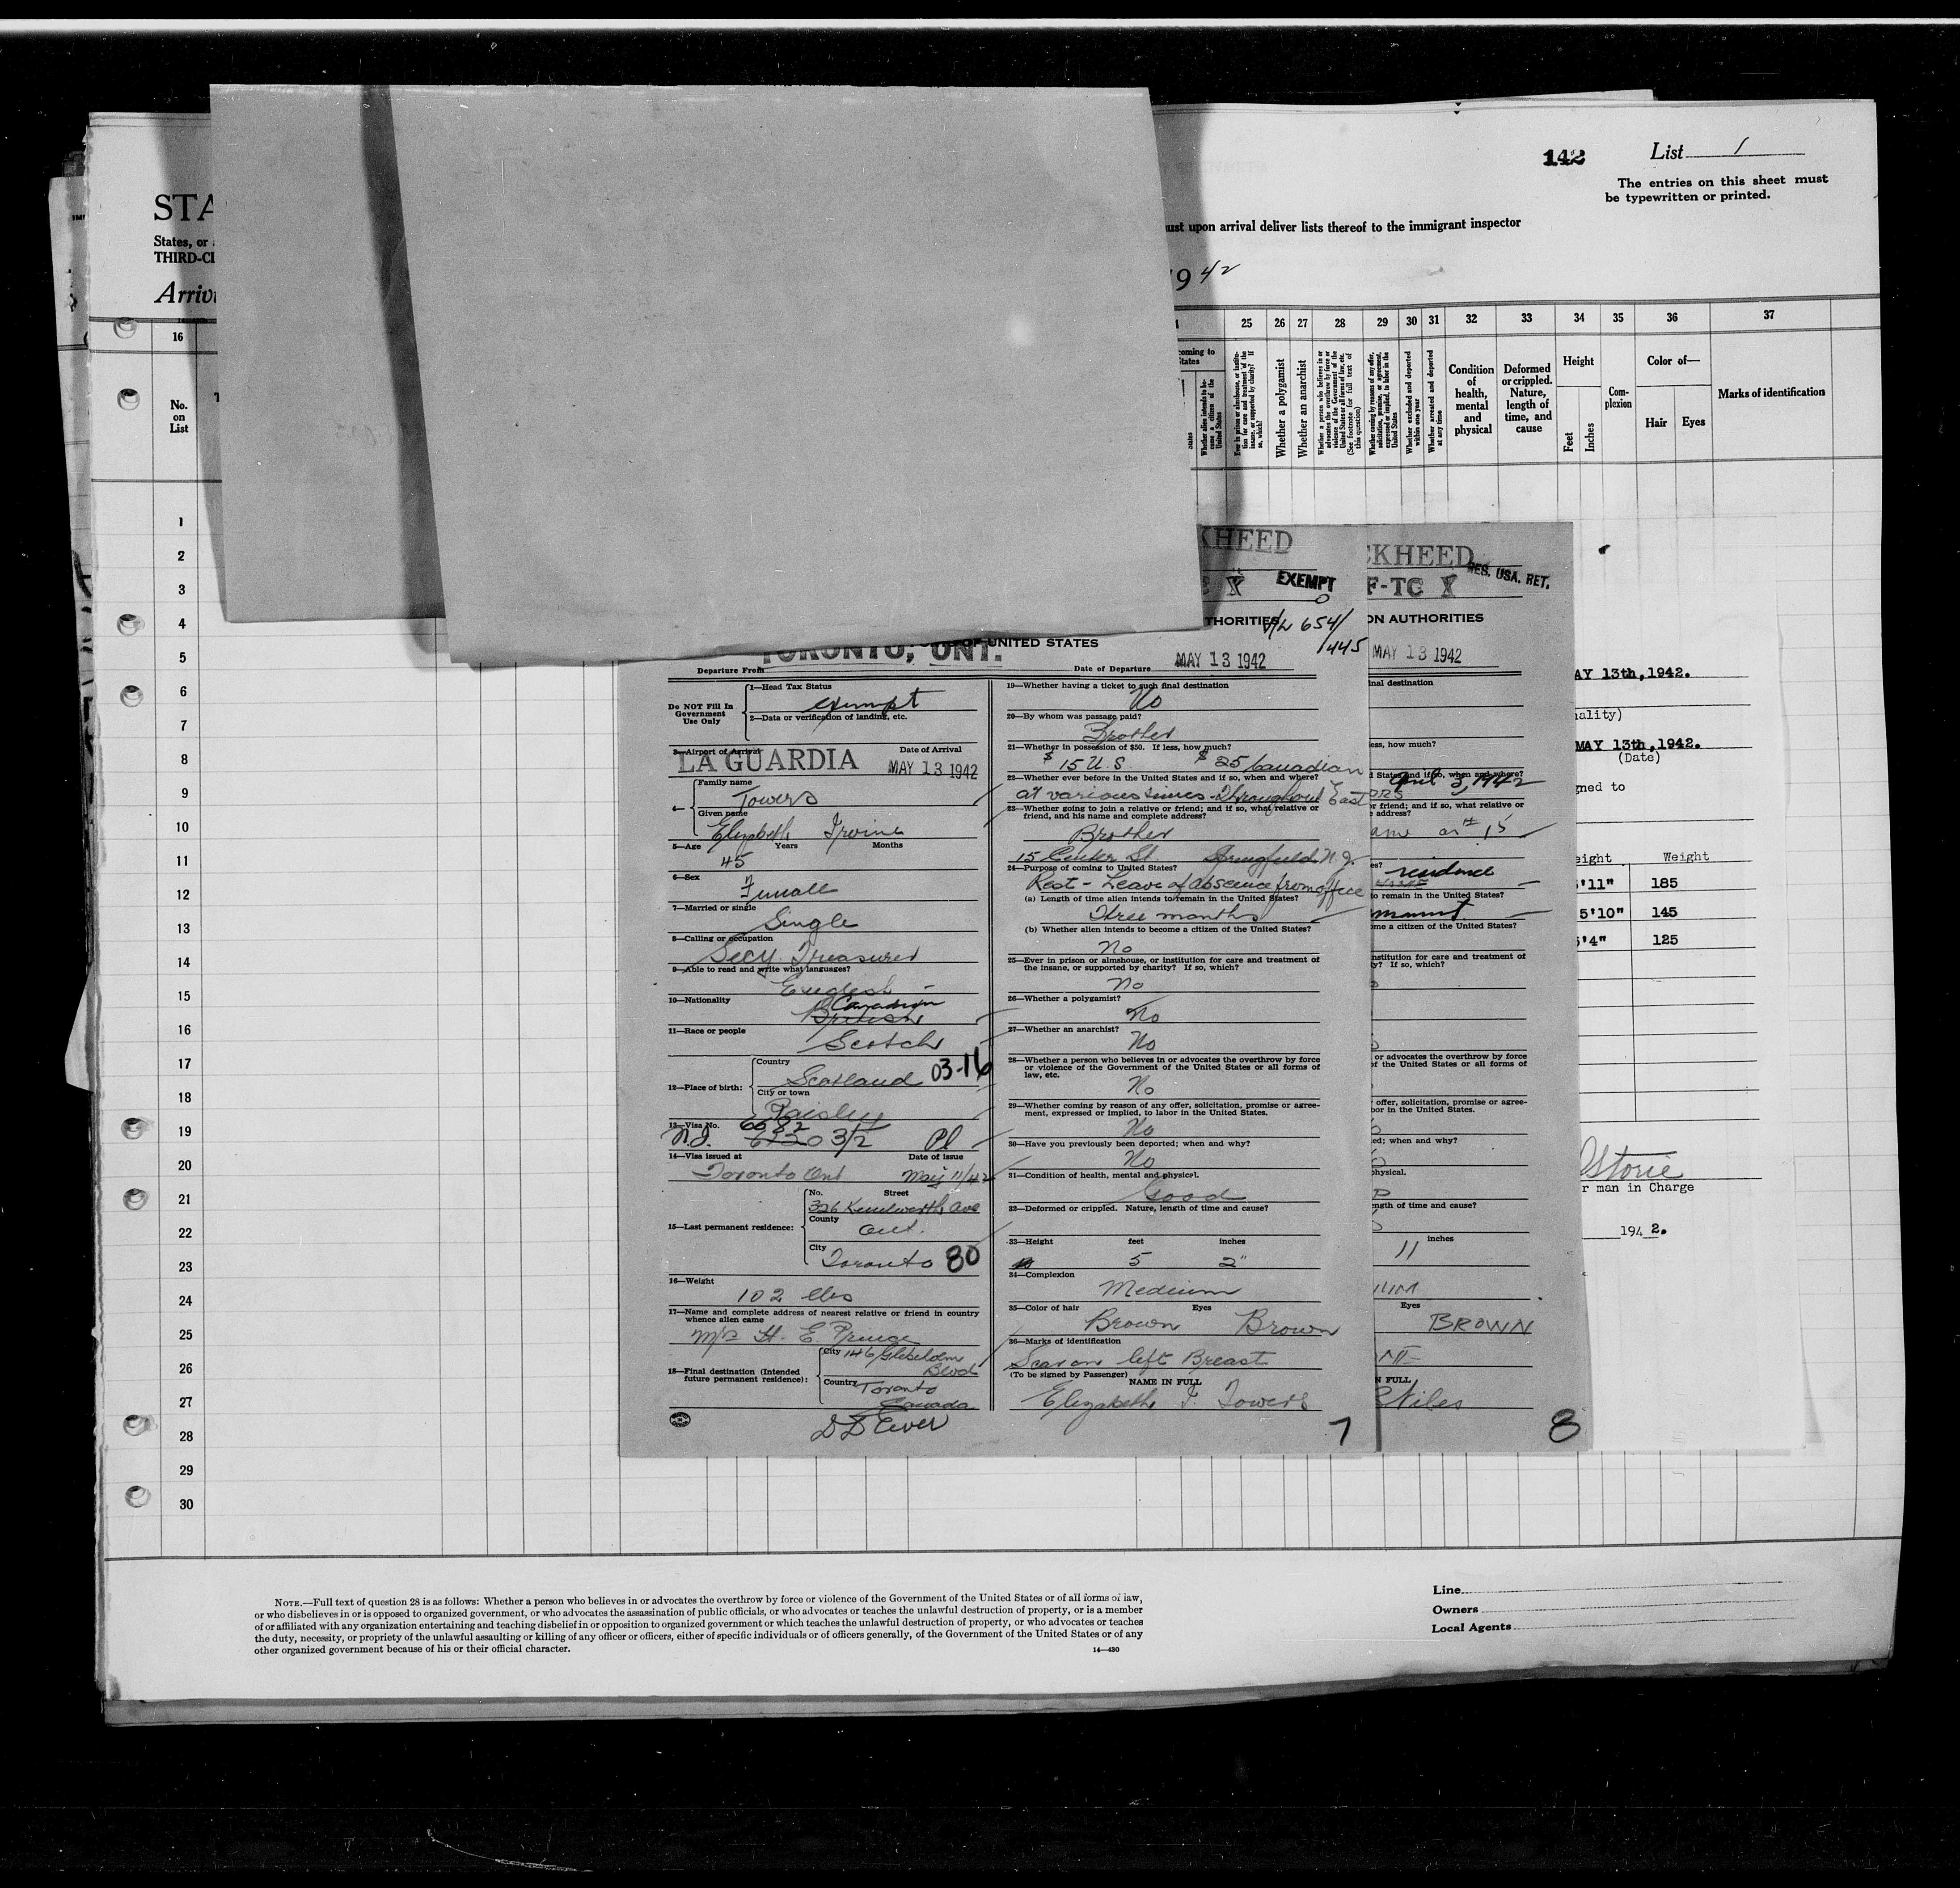 142
List 1
The entries on this sheet must
be typewritten or printed.
STA
States, or
THIRD-CL
ust upon arrival deliver lists thereof to the immigrant inspector
Arriv
1942
16
25 26 27 28 29 30 31 32 33 34 35 36 37
No.
on
List
coming to
States
Whether alien intends to be-
come a citizen of the
United States
Ever in prison or almshouse, or institu-
tion for care and treatment of the
insane, or supported by charity? If
so, which?
Whether a polygamist
Whether an anarchist
Whether a person who believes in or
advocates the overthrow by force or
violence of the Government of the
United States or all forms of law, etc.
(See footnote for full text of
this question)
Whether coming by reason of any offer,
solicitation, promise, or agreement,
expressed or implied, to labor in the
United States
Whether excluded and deported
within one year
Whether arrested and deported
at any time
Condition
of
health,
mental
and
physical
Deformed
or crippled.
Nature,
length of
time, and
cause
Height
Feet
Inches
Com-
plexion
Color of—
Hair
Eyes
Marks of identification
1
2
3
4
5
6
7
8
9
10
11
12
13
14
15
16
17
18
19
20
21
22
23
24
25
26
27
28
29
30
KHEED
EXEMPT
THORITIES
OF UNITED STATES
TORONTO, ONT.
Departure From
Date of Departure MAY 13 1942
Do NOT Fill In
Government
Use Only
1—Head Tax Status
exempt
2—Data or verification of landing, etc.
3—Airport of Arrival
Date of Arrival
LA GUARDIA MAY 13 1942
4—
Family name
Towers
Given name
Elizabeth Irvine
5—Age Years Months
45
6—Sex
Female
7—Married or single
Single
8—Calling or occupation
Secy. Treasurer
9—Able to read and write what languages?
English
10—Nationality
Canadian
British
11—Race or people
Scotch
12—Place of birth:
Country
Scotland 03-16
City or town
Paisley
13—Visa No.
14—Visa issued at Date of issue
Toronto Ont May 11/42
15—Last permanent residence:
No. Street
326 Kenilworth Ave
County
Ont.
City
Toronto 80
16—Weight
102 lbs
17—Name and complete address of nearest relative or friend in country
whence alien came
H. E.
18—Final destination (Intended
future permanent residence):
City 146 Glebeholm
Blvd
Country Toronto
Canada
19—Whether having a ticket to such final destination
No
20—By whom was passage paid?
Brother
21—Whether in possession of $50. If less, how much?
$15 U.S. $25 Canadian
22—Whether ever before in the United States and if so, when and where?
at various times - Throughout East
23—Whether going to join a relative or friend; and if so, what relative or
friend, and his name and complete address?
Brother
15 Center St. Springfield N.J.
24—Purpose of coming to United States?
Rest - Leave of absence from office
(a) Length of time alien intends to remain in the United States?
Three months
(b) Whether alien intends to become a citizen of the United States?
No
25—Ever in prison or almshouse, or institution for care and treatment of
the insane, or supported by charity? If so, which?
No
26—Whether a polygamist?
No
27—Whether an anarchist?
No
28—Whether a person who believes in or advocates the overthrow by force
or violence of the Government of the United States or all forms of
law, etc.
No
29—Whether coming by reason of any offer, solicitation, promise or agree-
ment, expressed or implied, to labor in the United States.
No
30—Have you previously been deported; when and why?
No
31—Condition of health, mental and physical.
Good
32—Deformed or crippled. Nature, length of time and cause?
33—Height feet inches
5 2"
34—Complexion
Medium
35—Color of hair Eyes
Brown Brown
36—Marks of identification
Scar on left Breast
(To be signed by Passenger)
NAME IN FULL
Elizabeth I. Towers
7
CKHEED
RES. USA. RET.
F-TC X
ON AUTHORITIES
MAY 13 1942
inal destination
ess, how much?
d States and if so, when and where?
April 3, 1942
r friend; and if so, what relative or
address?
as #15
es?
residence
to remain in the United States?
me a citizen of the United States?
nstitution for care and treatment of
ty? If so, which?
or advocates the overthrow by force
of the United States or all forms of
offer, solicitation, promise or agree-
bor in the United States.
ed; when and why?
physical.
ngth of time and cause?
11 inches
Eyes
BROWN
N FULL
8
AY 13th,1942.
nality)
MAY 13th,1942.
(Date)
gned to
eight Weight
'11" 185
5'10" 145
'4" 125
Storie
r man in Charge
1942.
NOTE.—Full text of question 28 is as follows: Whether a person who believes in or advocates the overthrow by force or violence of the Government of the United States or of all forms of law,
or who disbelieves in or is opposed to organized government, or who advocates the assassination of public officials, or who advocates or teaches the unlawful destruction of property, or is a member
of or affiliated with any organization entertaining and teaching disbelief in or opposition to organized government or which teaches the unlawful destruction of property, or who advocates or teaches
the duty, necessity, or propriety of the unlawful assaulting or killing of any officer or officers, either of specific individuals or of officers generally, of the Government of the United States or of any
other organized government because of his or their official character.
14—430
Line
Owners
Local Agents